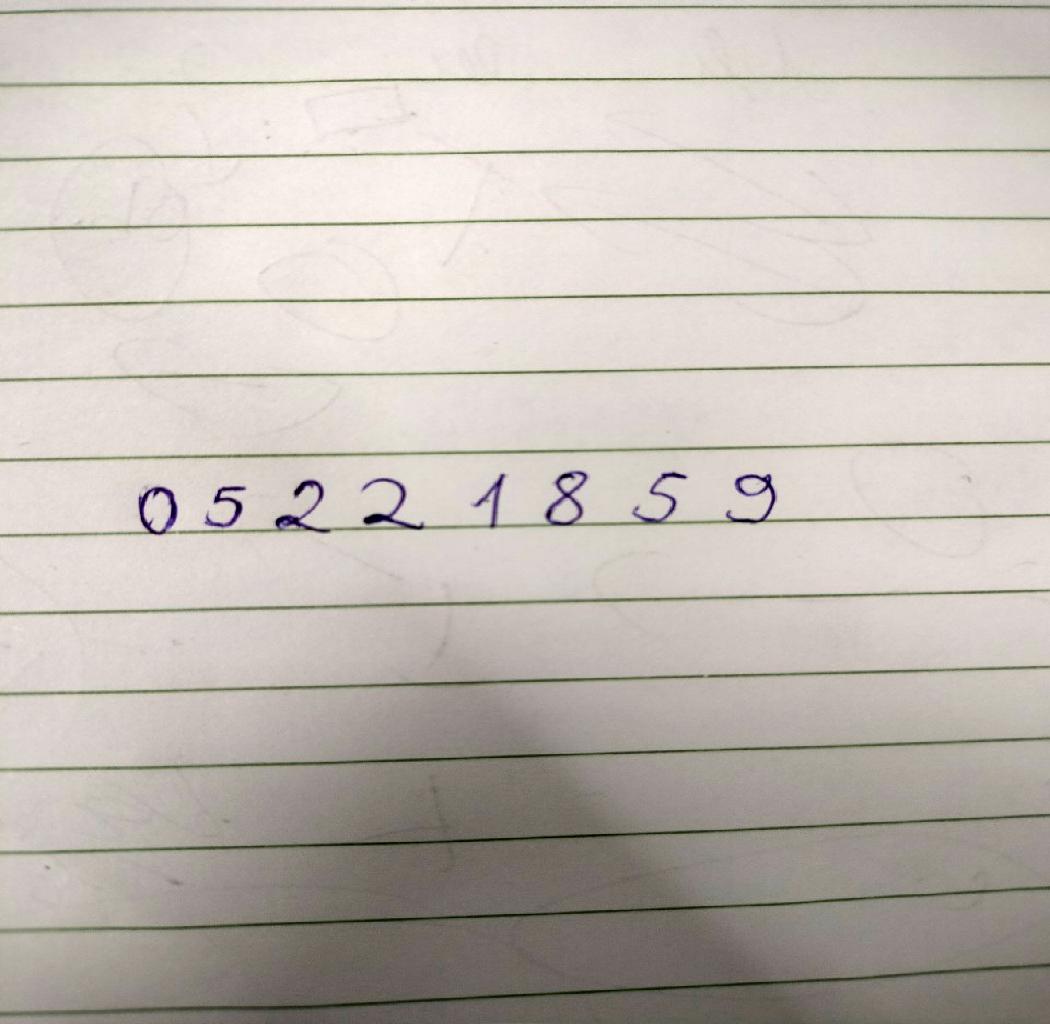 0 5 2 2 1 8 5 9